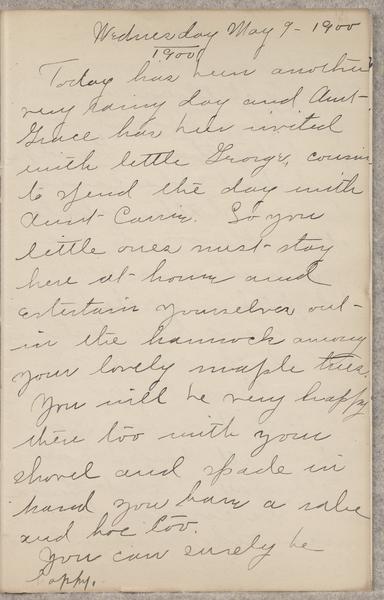 Wednesday May 9 - 1900
1900
Today has been another
very rainy day and Aunt
Grace has been invited
with little George, cousin,
to spend the day with
Aunt Carrie. So you
little ones must stay
here at home and
entertain yourselves out-
in the hammock among
your lovely maple trees.
You will be very happy
there too with your
shovel and spade in
hand you have a rake
and hoe too.
You can surely be
happy.